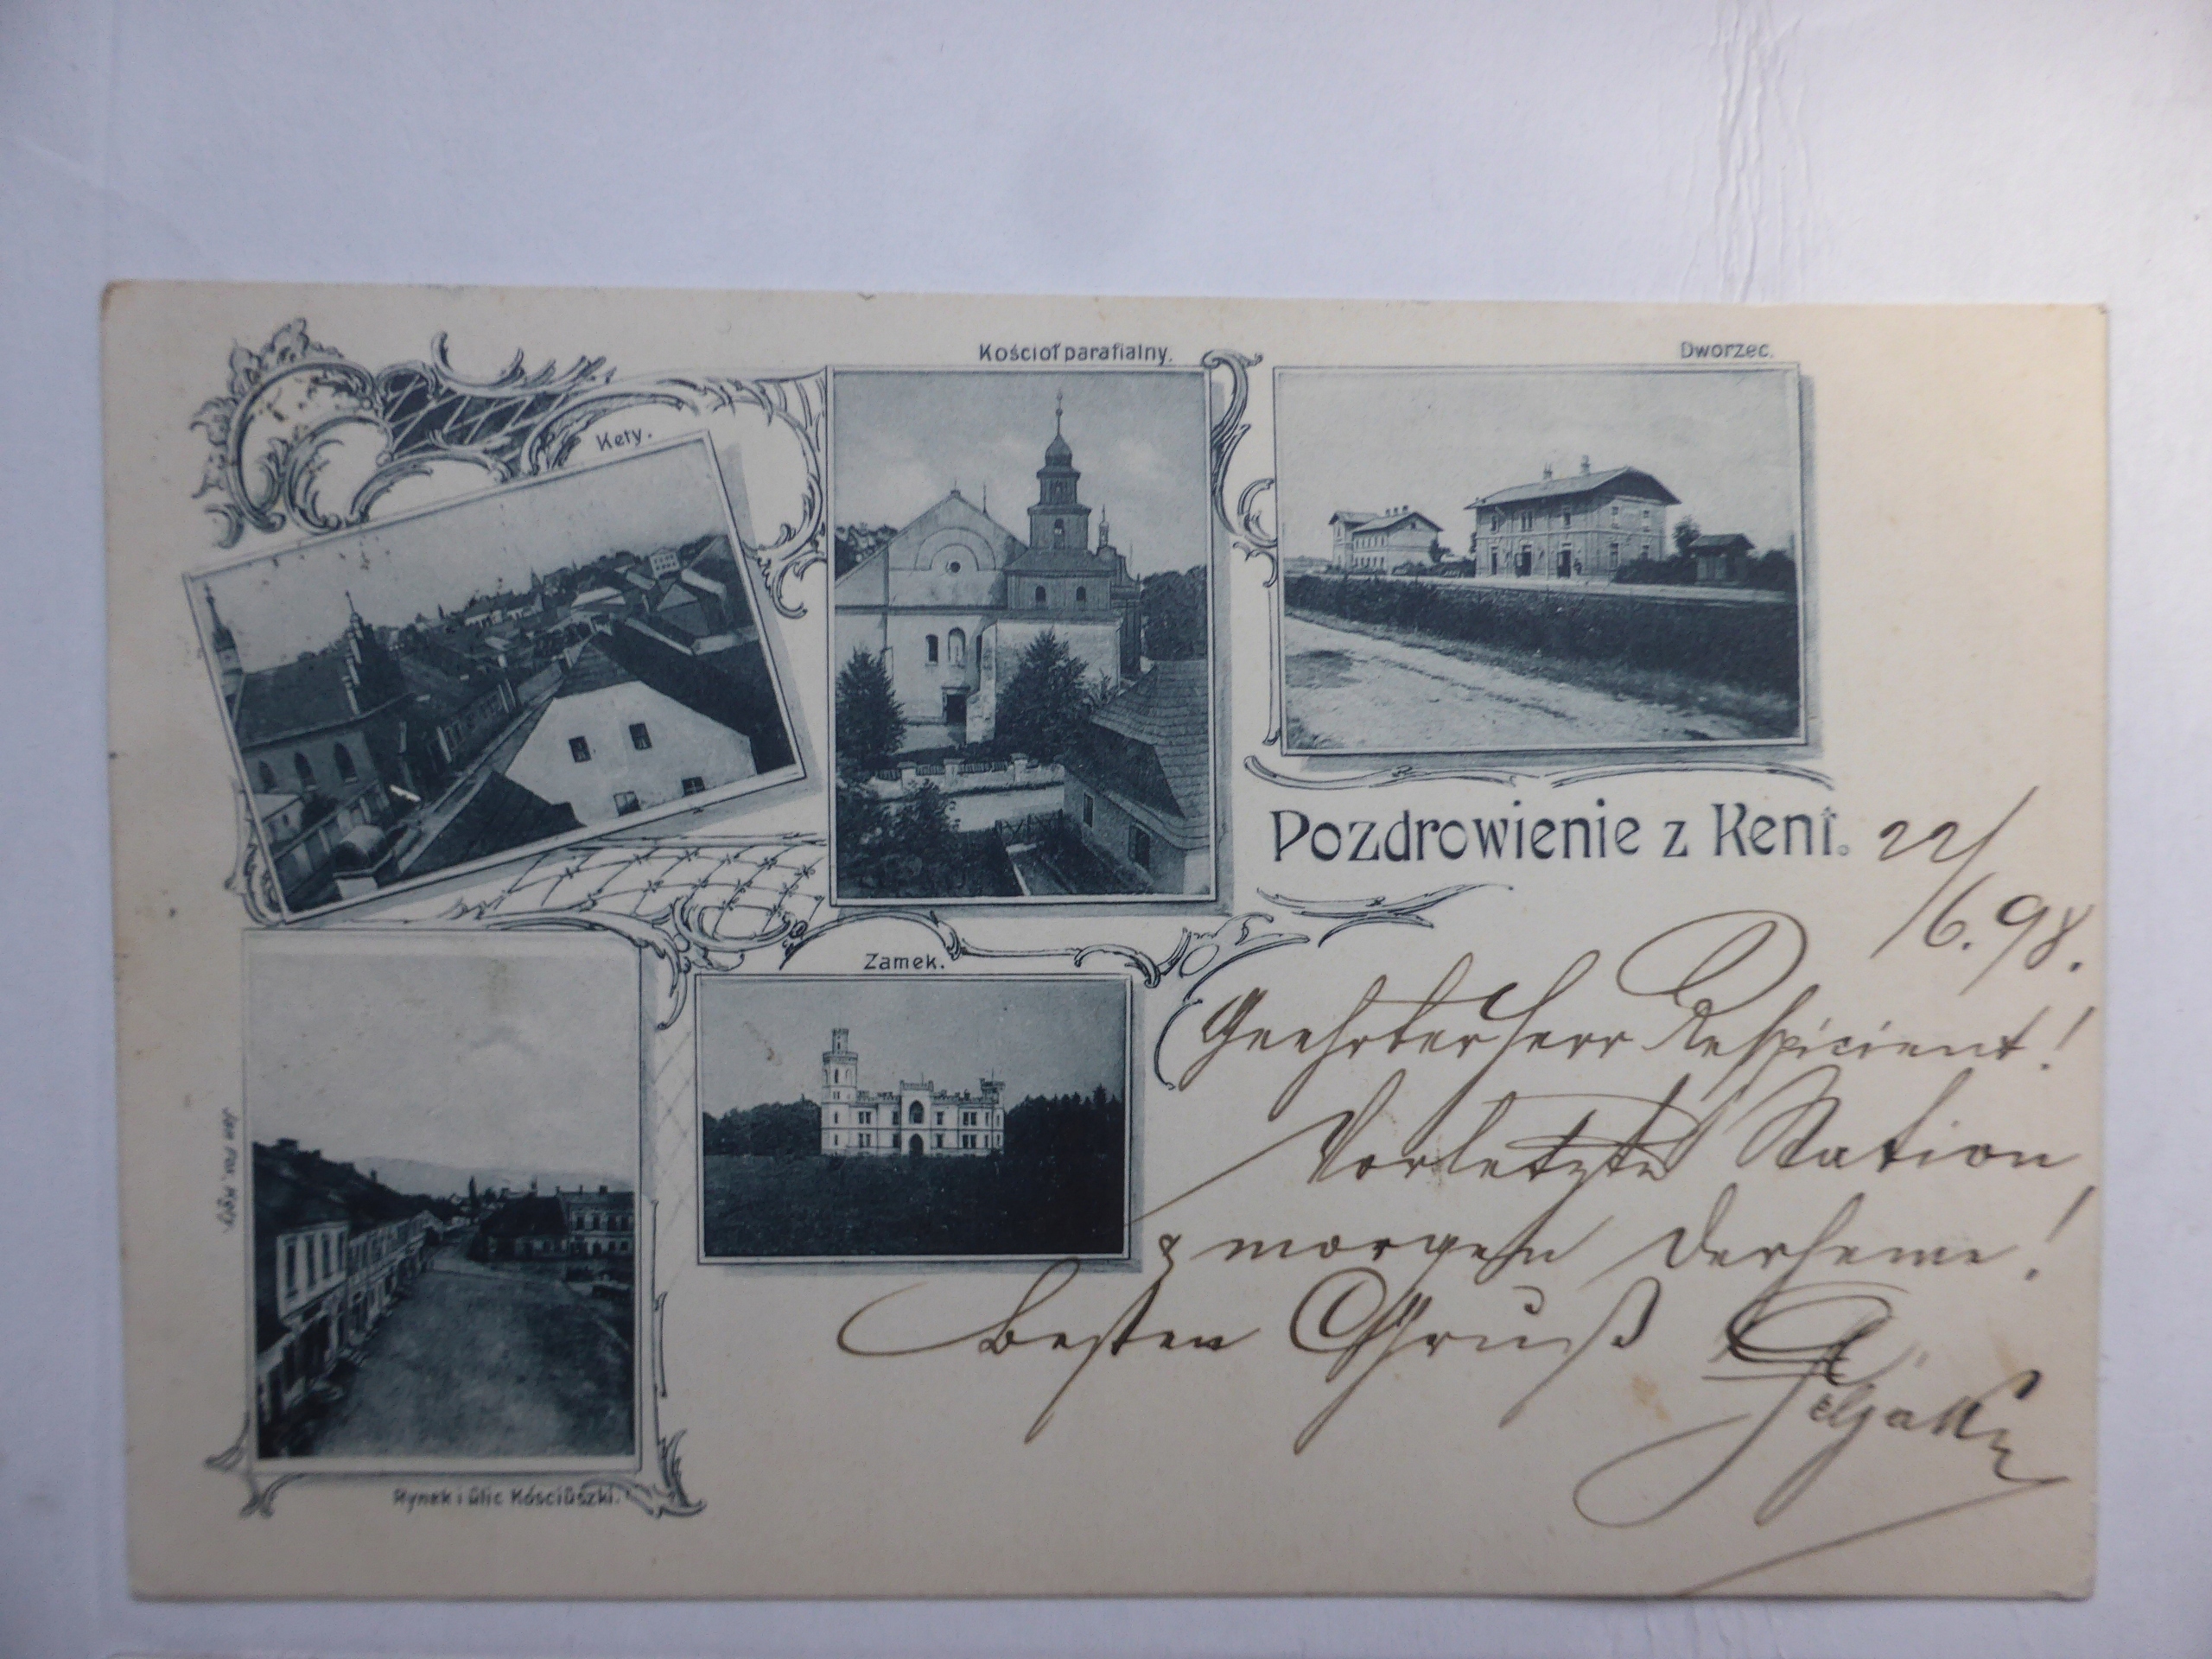 Kościoł parafialny.
Dworzec.
Kęty.
Pozdrowienie z Kent.
22/
/6.98.
Zamek.
Geehrter Herr Respicient!
Vorletzte Station
& morgen derheme!
Besten Gruß
Rynek i ulic Kósciuszki.